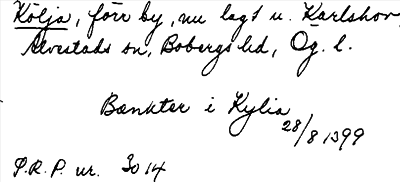 Kölja, förr by, nu lagt u. Karlshov,
Alvestads sn, Bobergs hd, Ög. l.
Bænkter i Kylia
28/8 1399
P.R.P. nr. 3014